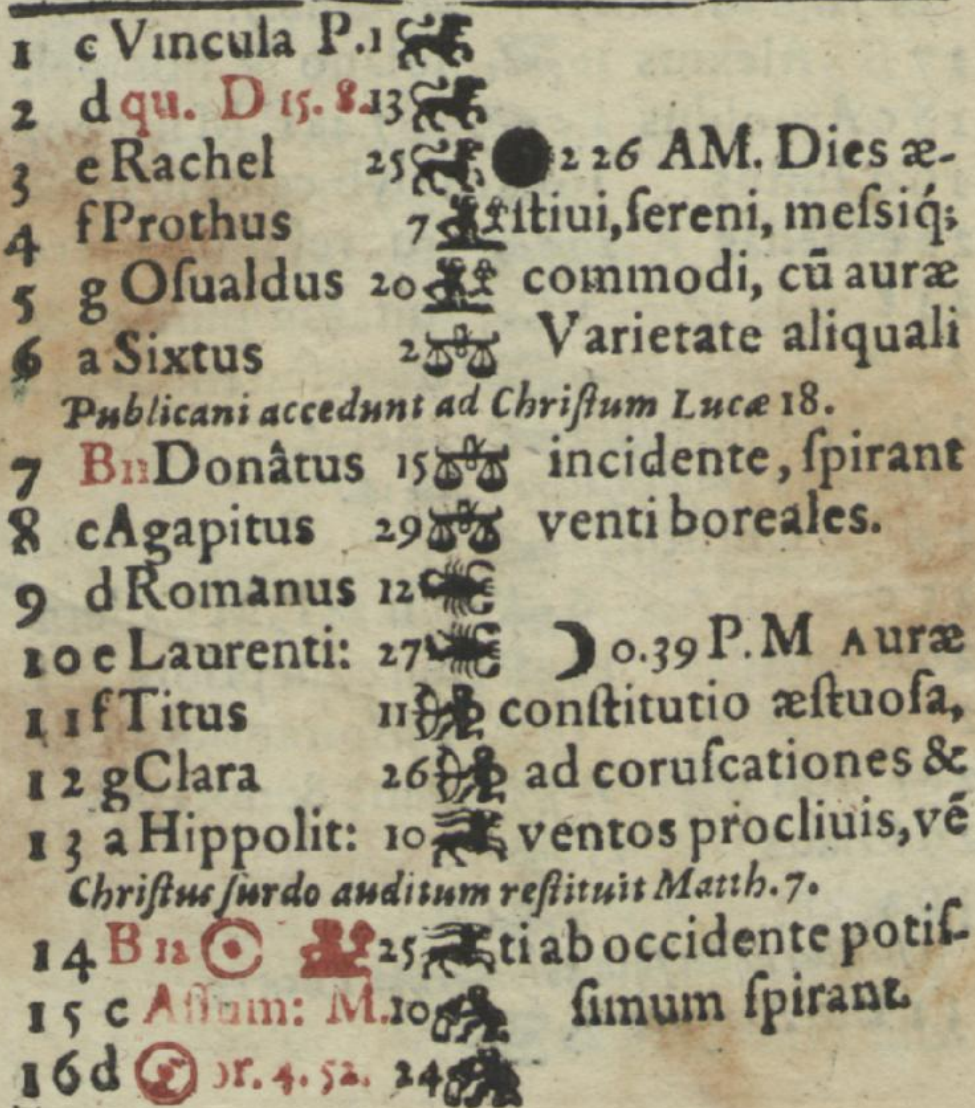 1 c Vincula P. 1
2 d qu. D 15. 8. 13
3 e Rachel 25 2 26 AM. Dies æ-
4 f Prothus 7 ſtiui, ſereni, meſsiq́;
5 g Oſualdus 20 commodi, cū auræ
6 a Sixtus 2 Varietate aliquali
Publicani accedunt ad Chriſtum Lucæ 18.
7 B 11 Donâtus 15 incidente, ſpirant
8 c Agapitus 29 venti boreales.
9 d Romanus 12
10 e Laurenti: 27 ☽ 0.39 P.M Auræ
11 f Titus 11 conſtitutio æſtuoſa,
12 g Clara 26 ad coruſcationes &
13 a Hippolit: 10 ventos procliuis, vē
Chriſtus ſurdo auditum reſtituit Matth. 7.
14 B 12 ☉ 25 ti ab occidente potiſ-
15 c Aſſum: M. 10 ſimum ſpirant.
16 d or. 4. 52. 24